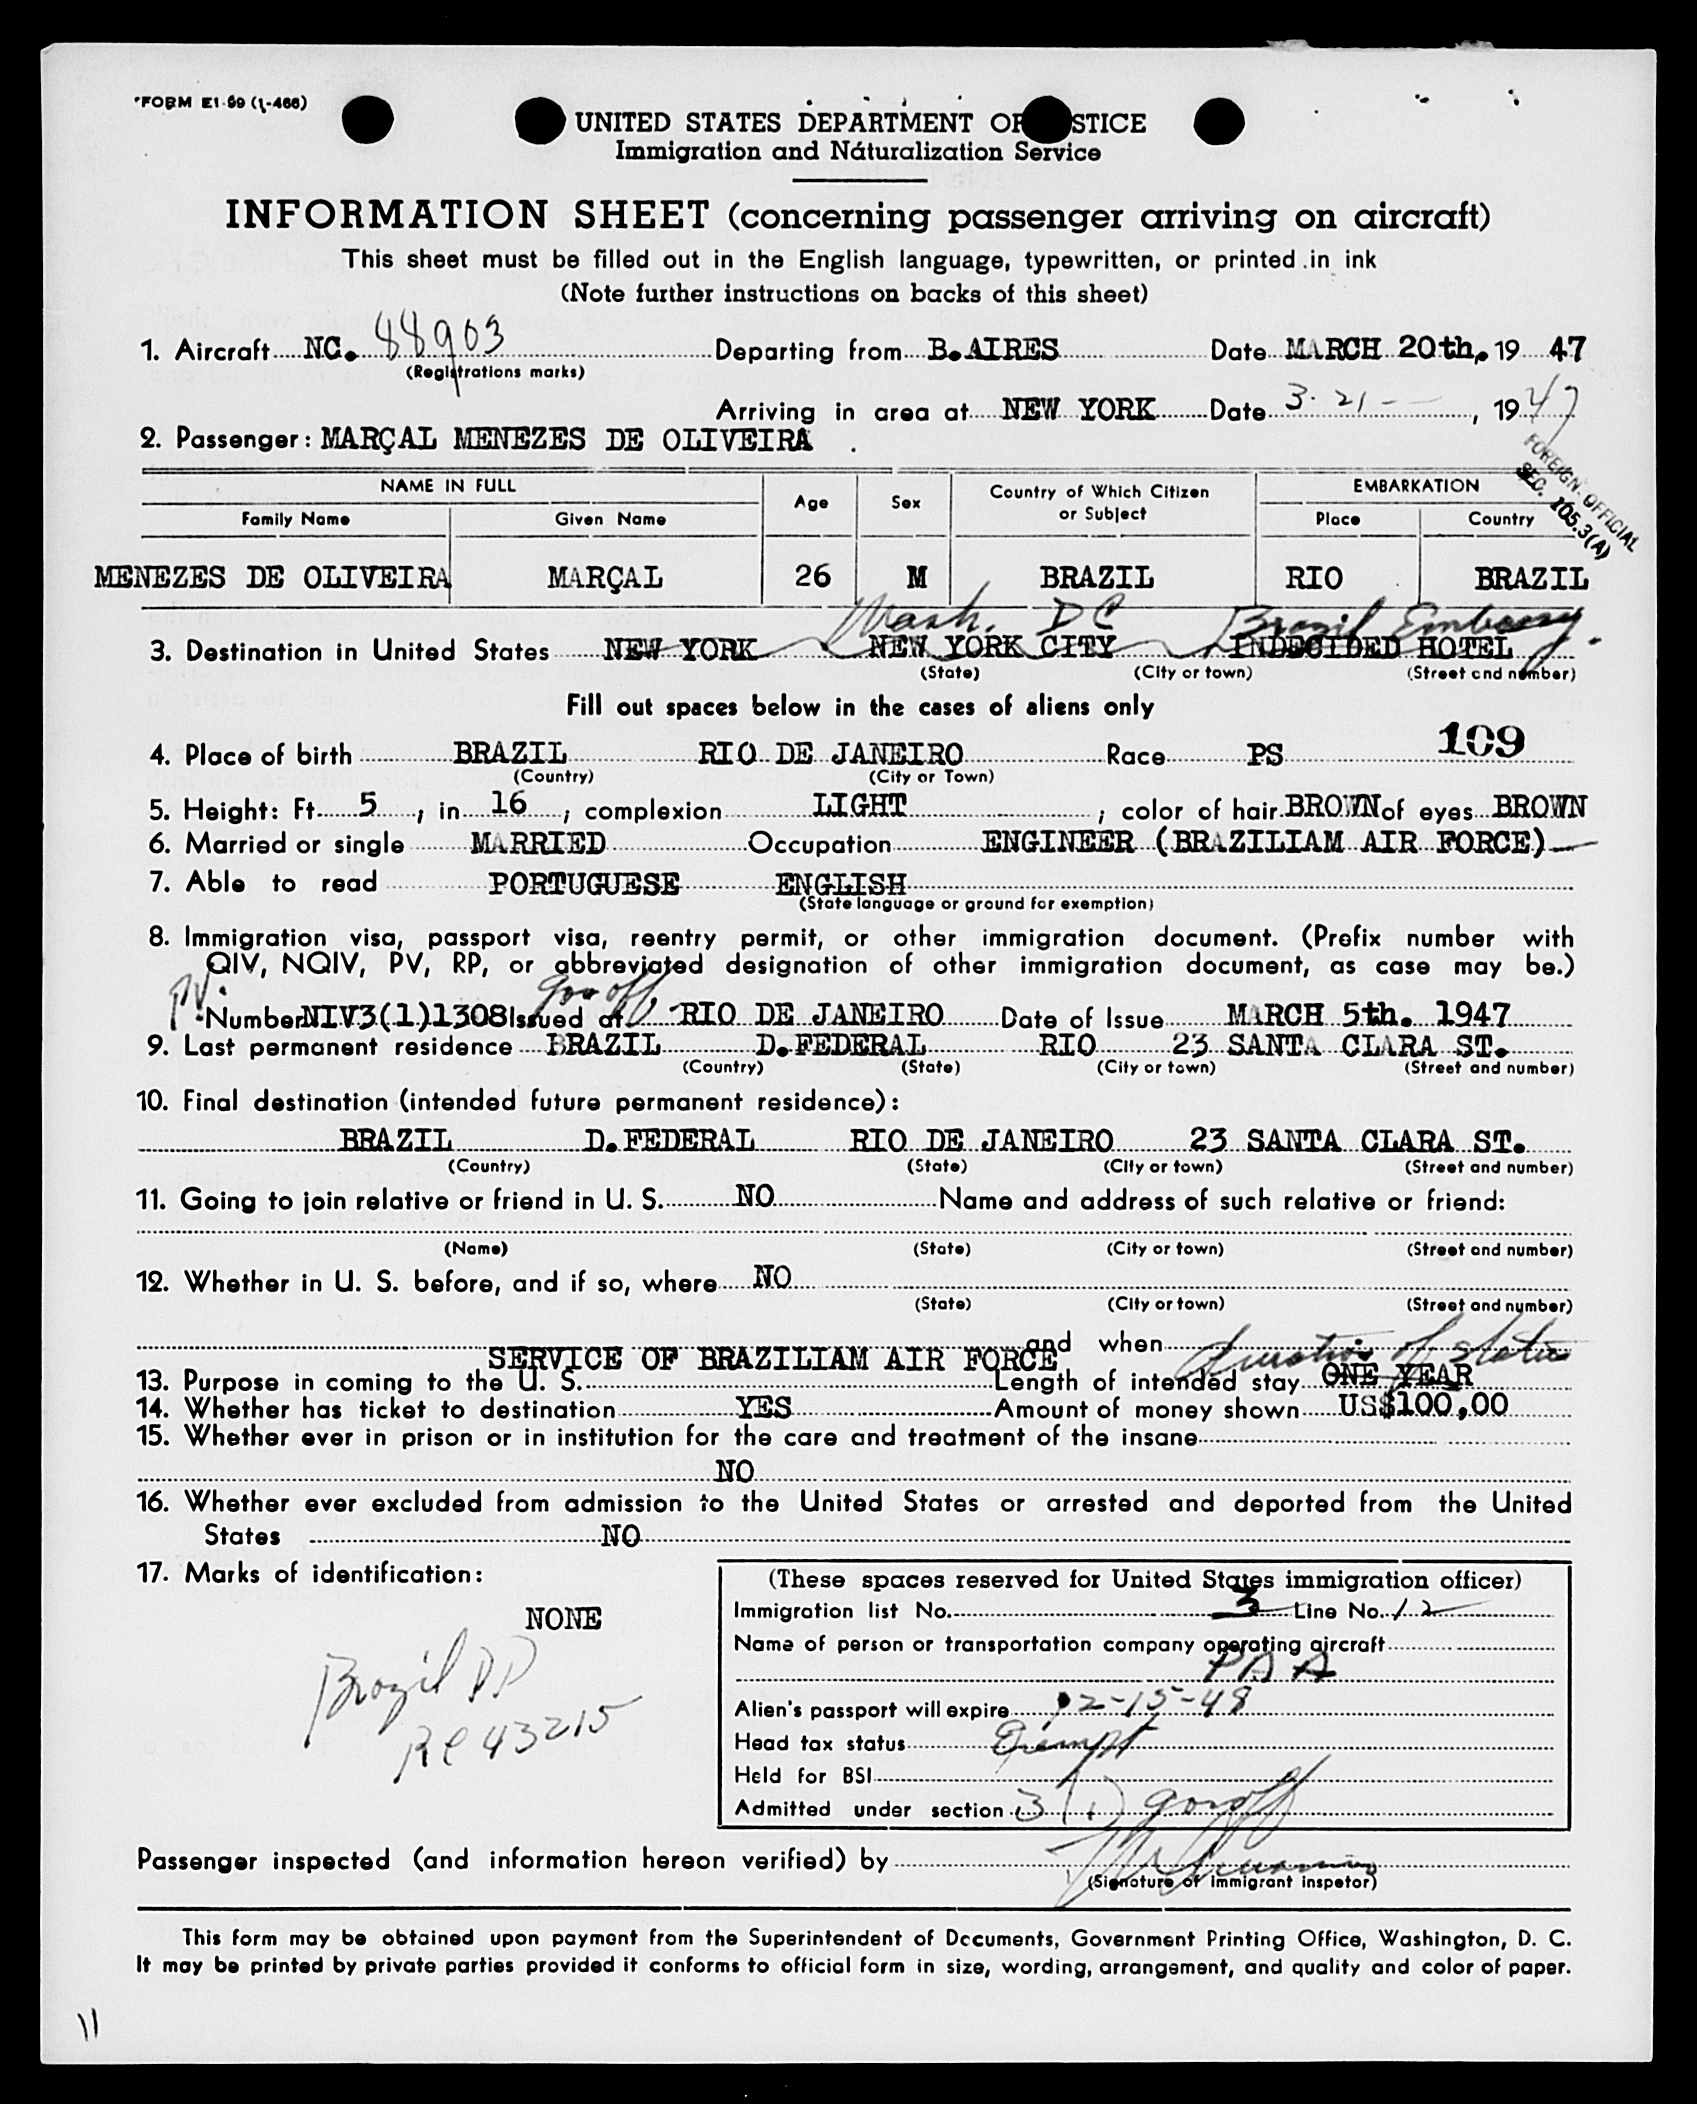 FORM EI-59 (1-466)
UNITED STATES DEPARTMENT OF STICE
Immigration and Naturalization Service
INFORMATION SHEET (concerning passenger arriving on aircraft)
This sheet must be filled out in the English language, typewritten, or printed in ink
(Note further instructions on backs of this sheet)
1. Aircraft NC. 88903 Departing from B.AIRES Date MARCH 20th, 19 47
(Registrations marks)
Arriving in area at NEW YORK Date 3-21- , 1947
2. Passenger: MARÇAL MENEZES DE OLIVEIRA
FOREIGN OFFICIAL
SEC. 105.3(A)
NAME IN FULL Age Sex Country of Which Citizen or Subject EMBARKATION
Family Name Given Name Place Country
MENEZES DE OLIVEIRA MARÇAL 26 M BRAZIL RIO BRAZIL
Wash. DC Brazil Embassy.
3. Destination in United States NEW YORK NEW YORK CITY INDECIDED HOTEL
(State) (City or town) (Street and number)
Fill out spaces below in the cases of aliens only
109
4. Place of birth BRAZIL RIO DE JANEIRO Race PS
(Country) (City or Town)
5. Height: Ft. 5 , in. 16 ; complexion LIGHT ; color of hair BROWN of eyes BROWN
6. Married or single MARRIED Occupation ENGINEER (BRAZILIAM AIR FORCE)
7. Able to read PORTUGUESE ENGLISH
(State language or ground for exemption)
8. Immigration visa, passport visa, reentry permit, or other immigration document. (Prefix number with
QIV, NQIV, PV, RP, or abbreviated designation of other immigration document, as case may be.)
PV. Gov off,
Number NIV3(1)1308 Issued at RIO DE JANEIRO Date of Issue MARCH 5th. 1947
9. Last permanent residence BRAZIL D.FEDERAL RIO 23 SANTA CLARA ST.
(Country) (State) (City or town) (Street and number)
10. Final destination (intended future permanent residence):
BRAZIL D.FEDERAL RIO DE JANEIRO 23 SANTA CLARA ST.
(Country) (State) (City or town) (Street and number)
11. Going to join relative or friend in U. S. NO Name and address of such relative or friend:
(Name) (State) (City or town) (Street and number)
12. Whether in U. S. before, and if so, where NO
(State) (City or town) (Street and number)
and when
SERVICE OF BRAZILIAM AIR FORCE Duration of status
13. Purpose in coming to the U. S. Length of intended stay ONE YEAR
14. Whether has ticket to destination YES Amount of money shown US$100,00
15. Whether ever in prison or in institution for the care and treatment of the insane
NO
16. Whether ever excluded from admission to the United States or arrested and deported from the United
States NO
17. Marks of identification:
NONE
Brazil DP
Re 43215
(These spaces reserved for United States immigration officer)
Immigration list No. 3 Line No. 12
Name of person or transportation company operating aircraft
PAA
Alien's passport will expire 2-15-48
Head tax status Exempt
Held for BSI
Admitted under section 3(1) gov off
Passenger inspected (and information hereon verified) by
(Signature of immigrant inspetor)
This form may be obtained upon payment from the Superintendent of Documents, Government Printing Office, Washington, D. C.
It may be printed by private parties provided it conforms to official form in size, wording, arrangement, and quality and color of paper.
11